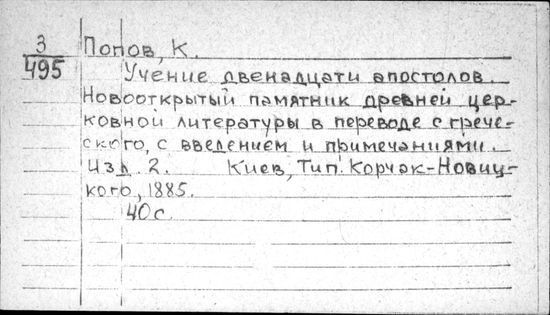 3
495
Попов, К.
Учение двенадцати апостолов.
Новооткрытый памятник древней цер-
ковной литературы в переводе с грече-
ского, с введением и примечаниями.
Изд. 2. Киев, Тип. Корчак-Новиц-
кого, 1885.
40 с.